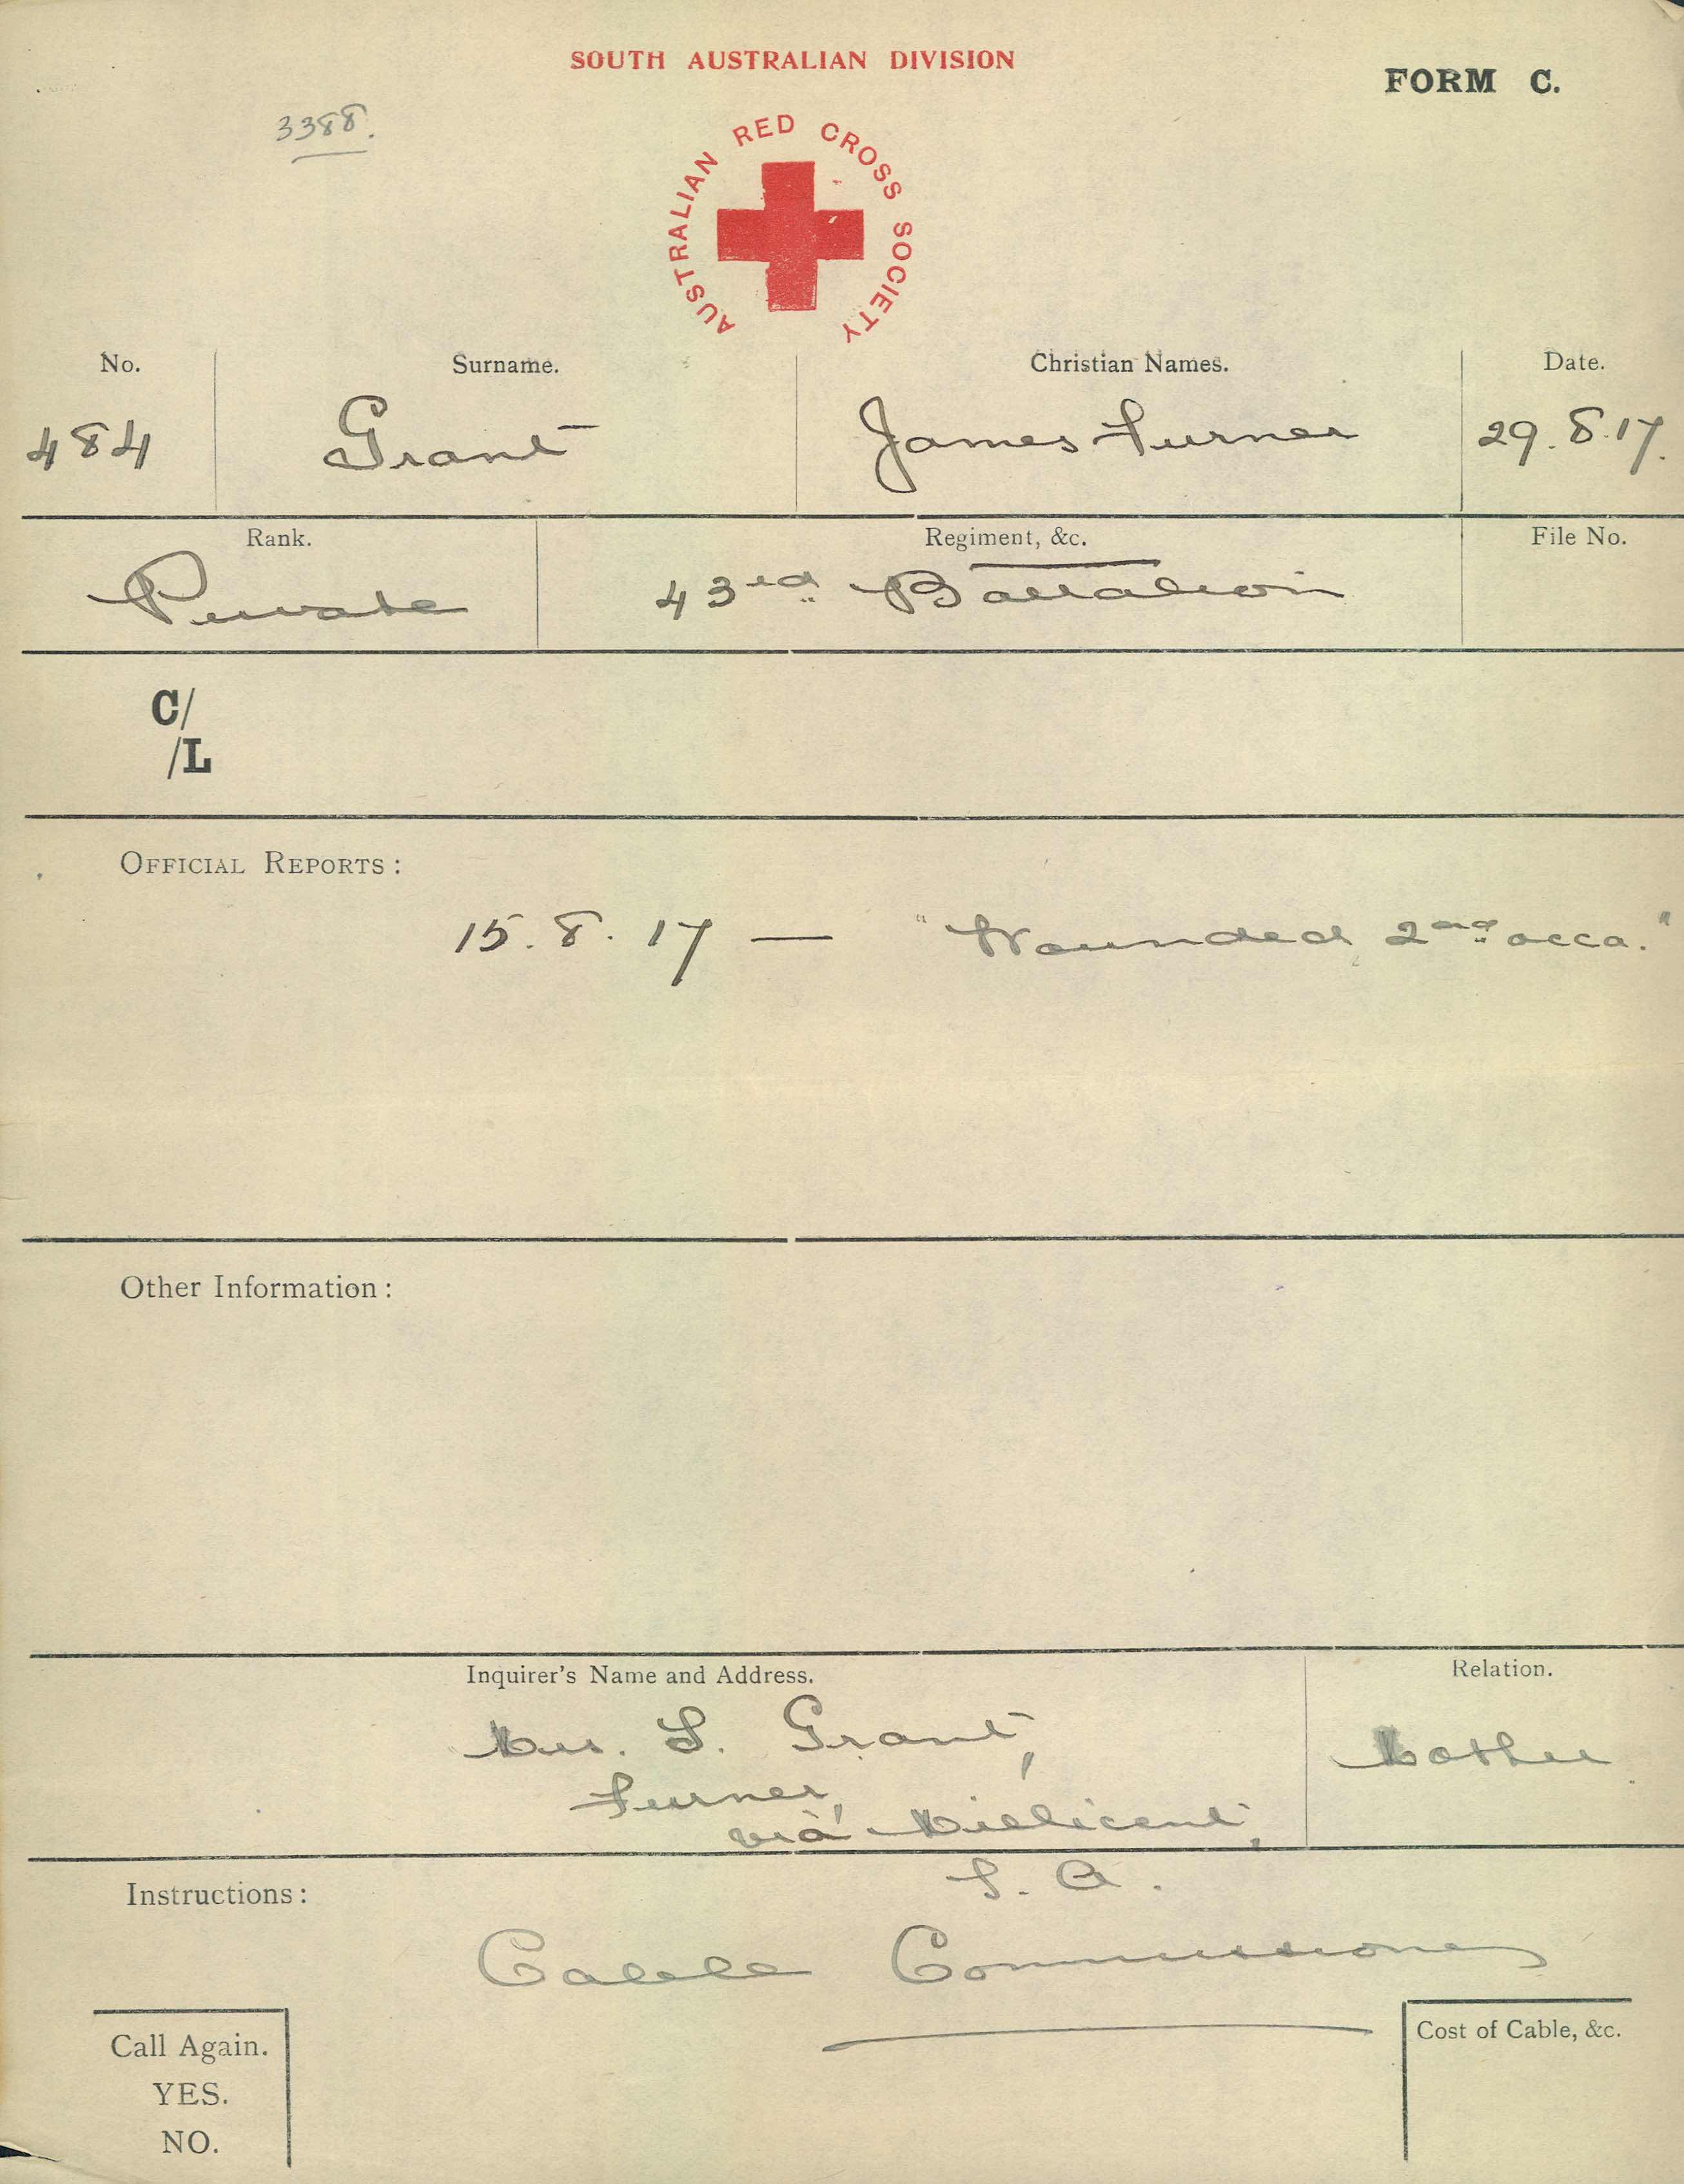 SOUTH AUSTRALIAN DIVISION
FORM C.
3388.
AUSTRALIAN RED CROSS SOCIETY
No. Surname. Christian Names. Date.
484 Grant James Turner 29.8.17.
Rank. Regiment, &c. File No.
Private 43rd Battalion
C/
/L
OFFICIAL REPORTS:
15.8.17 — "Wounded 2nd occa."
Other Information:
Inquirer's Name and Address. Relation.
Mrs. S. Grant, Mother
Furner,
via Millicent,
S. A.
Instructions:
Cable Commissioner
Call Again. Cost of Cable, &c.
YES.
NO.